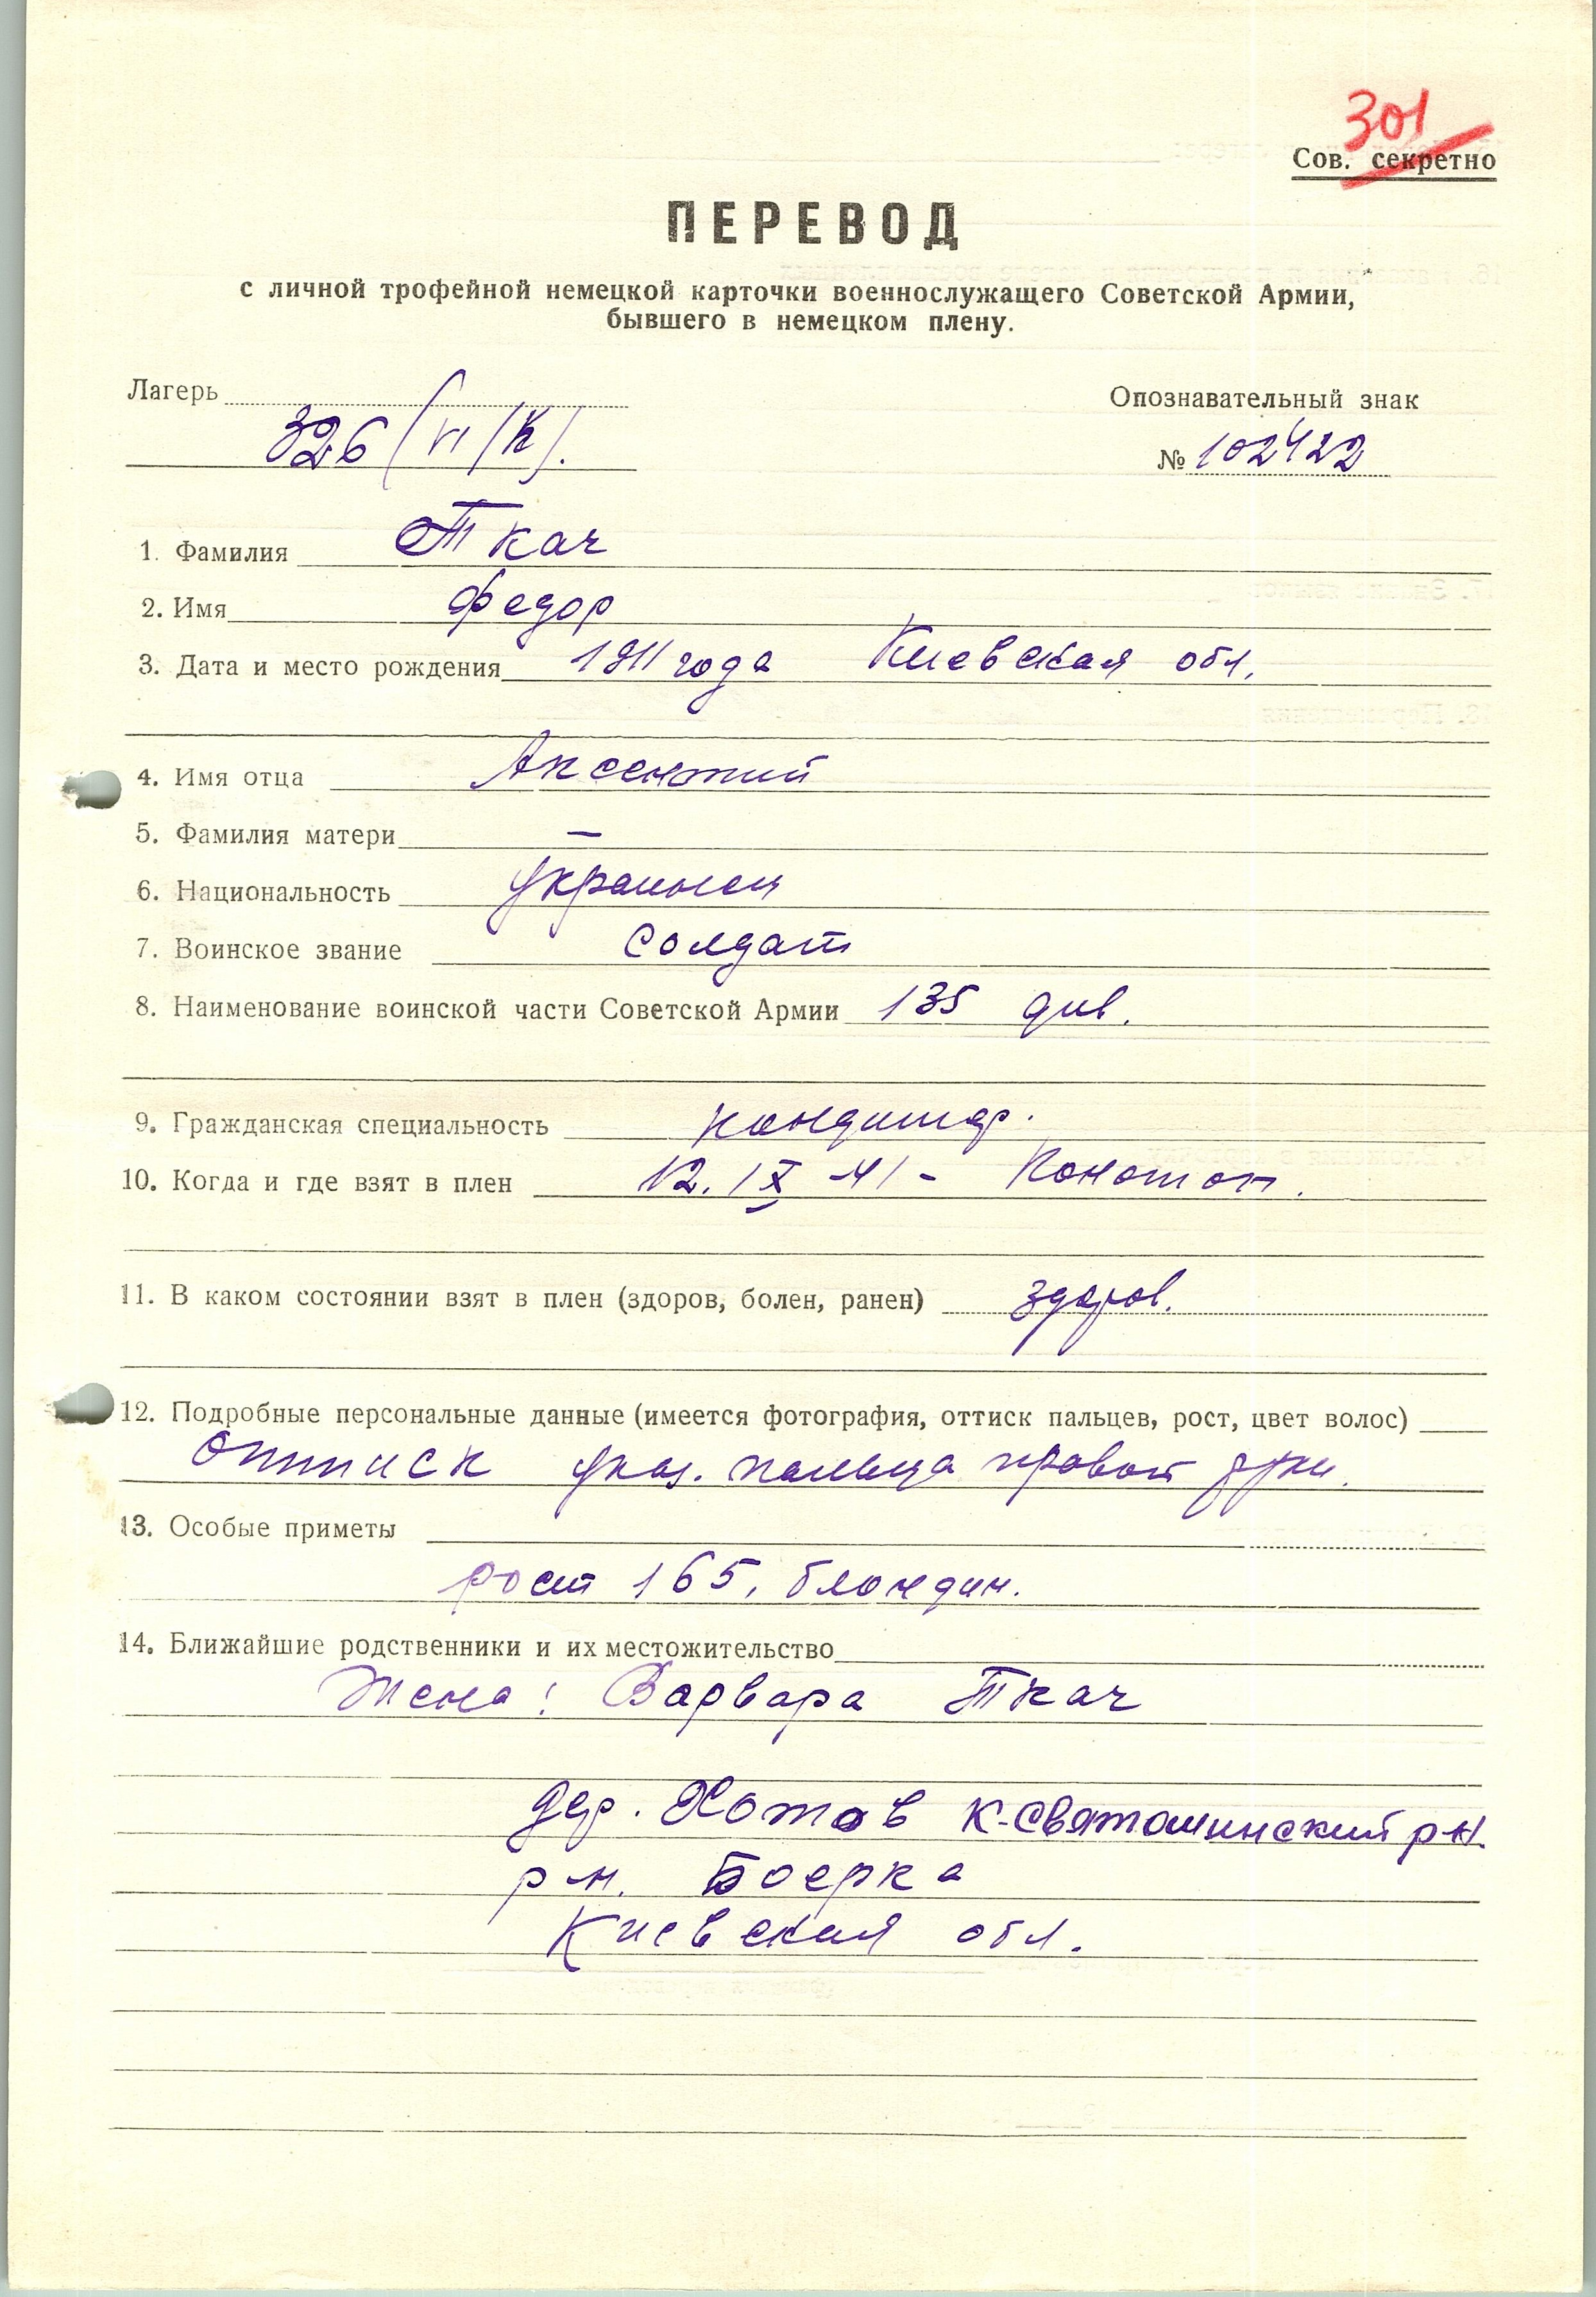 301
Сов. секретно
ПЕРЕВОД
с личной трофейной немецкой карточки военнослужащего Советской Армии,
бывшего в немецком плену.
Лагерь
Опознавательный знак
326 (VI/К).
№ 102422
1. Фамилия Ткач
2. Имя Федор
3. Дата и место рождения 1911 года Киевская обл.
4. Имя отца Аксентий
5. Фамилия матери —
6. Национальность украинец
7. Воинское звание солдат
8. Наименование воинской части Советской Армии 135 див.
9. Гражданская специальность кондитер.
10. Когда и где взят в плен 12. IX 41 - Конотоп.
11. В каком состоянии взят в плен (здоров, болен, ранен) здоров.
12. Подробные персональные данные (имеется фотография, оттиск пальцев, рост, цвет волос)
Оттиск указ. пальца правой руки.
13. Особые приметы
рост 165, блондин.
14. Ближайшие родственники и их местожительство
Жена: Варвара Ткач
дер. Хотов К-Святошинский р-н
р-н. Боерка
Киевская обл.